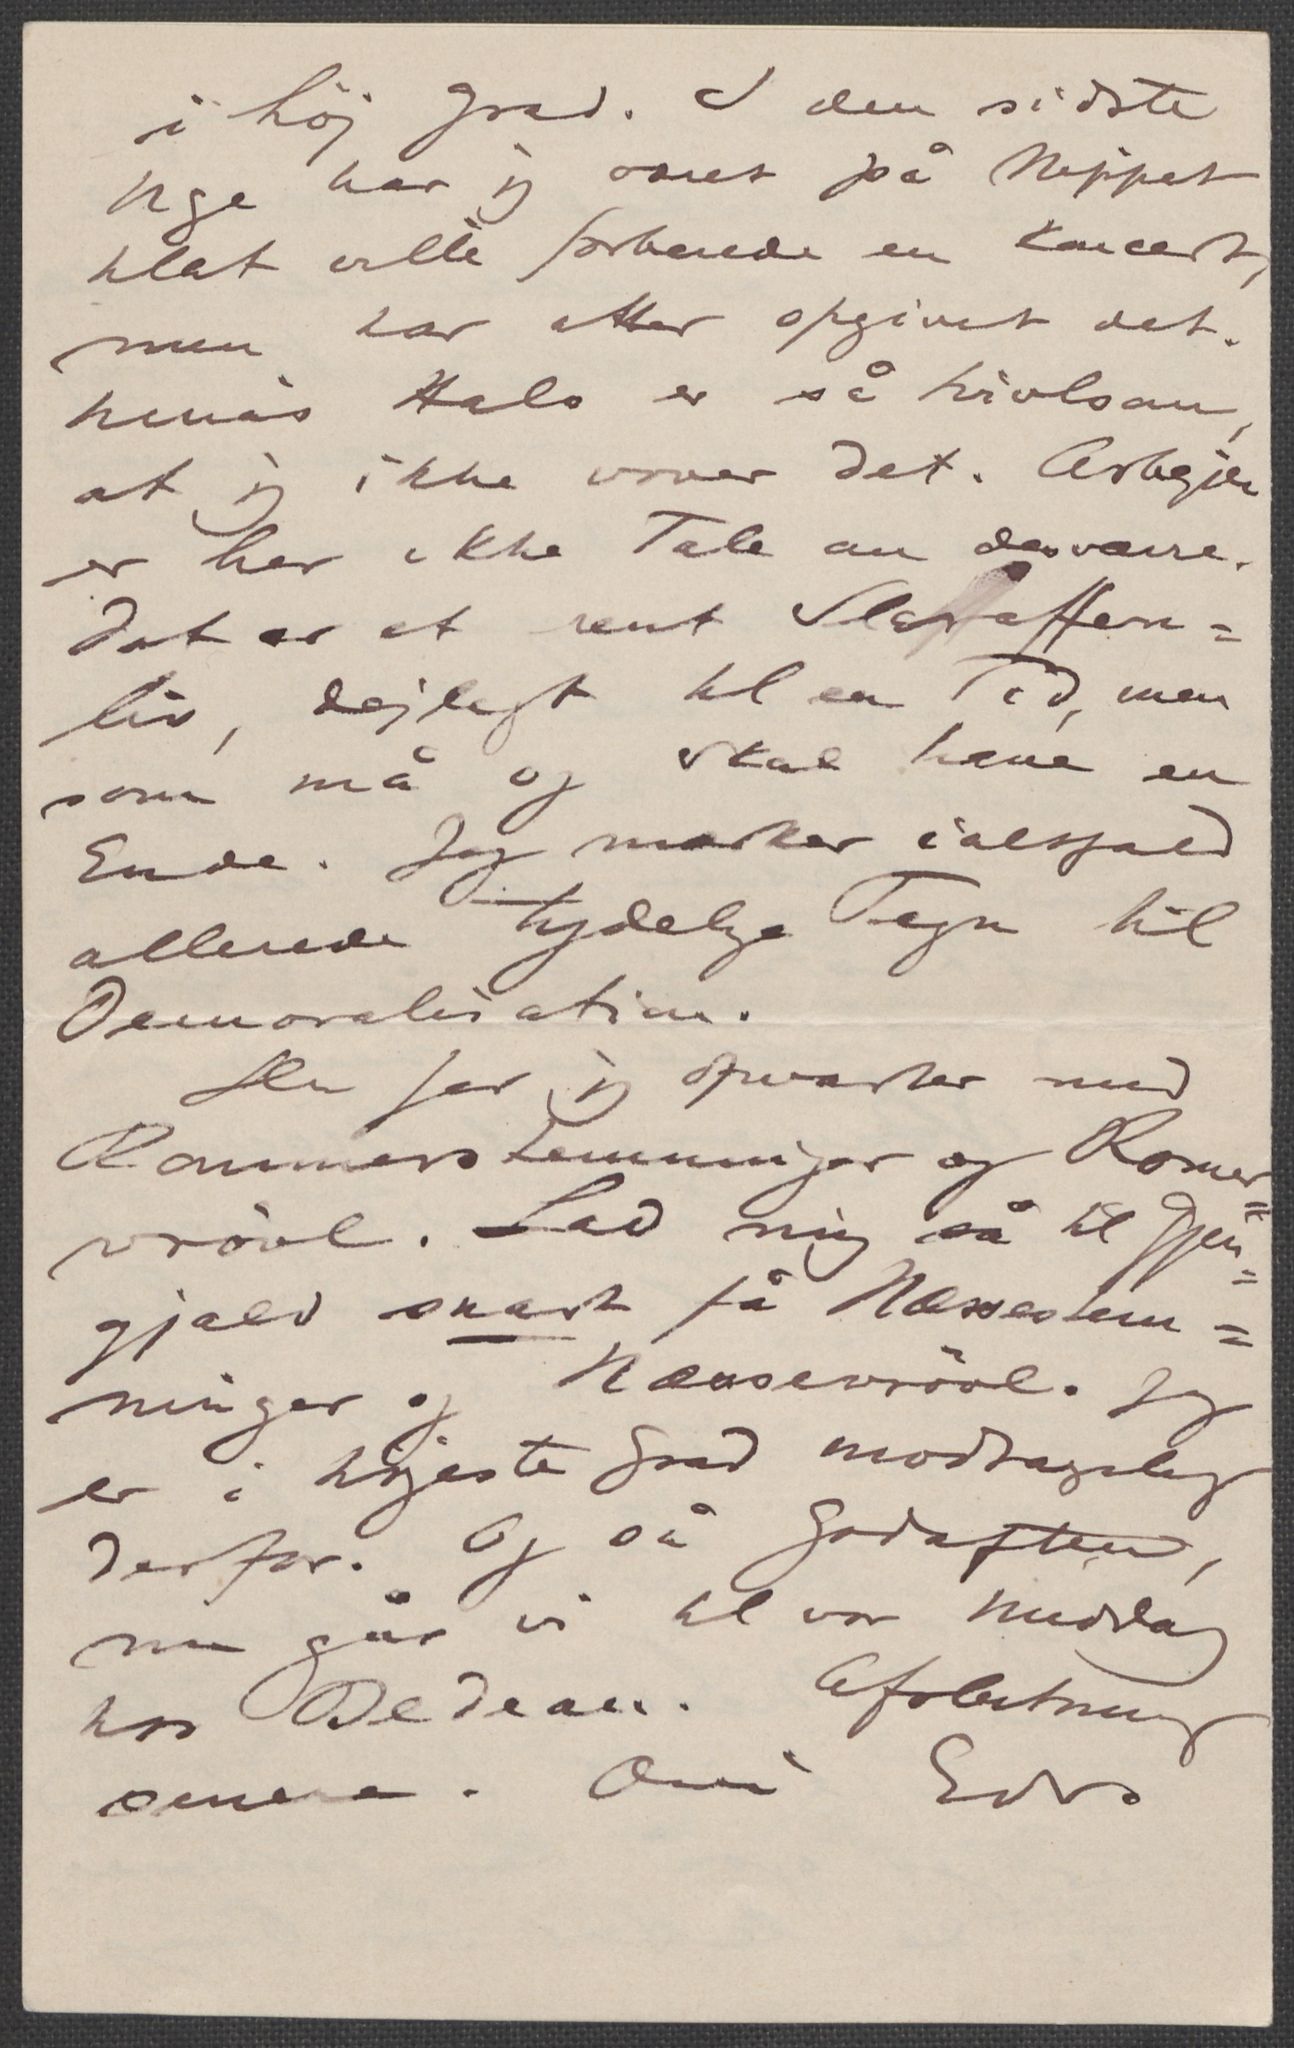 i høj Grad. I den sidste
Uge har jeg været på Nippet
til at ville forberede en Concert,
men har atter opgivet det.
Ninas Hals er så tvivlsom,
at jeg ikke vover det. Arbejde
er her ikke Tale om desværre.
Det er et rent Slaraffen=
liv, dejligt til en Tid, men
som må og skal have en
Ende. Jeg mærker ialtfald
allerede tydelige Tegn til
Demoralisation.
Her har jeg opvartet med
Romerstemninger og Romer=
vrövl. Lad mig så til Gjen=
gjæld snart få Næssestem=
ninger og Næssevrövl. Jeg
er i højeste Grad modtagelig
derfor. Og så Godaften,
nu går vi til vor Middag
hos Bedeau. Afslutning
senere. Din Edvs